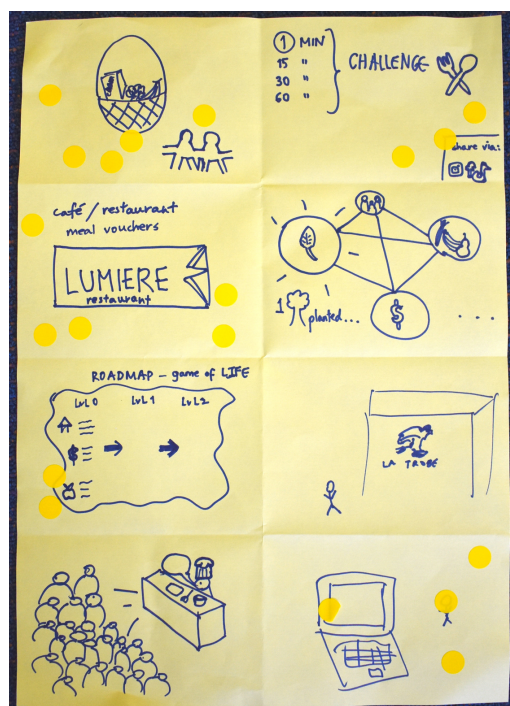 1 MIN
15 "
30 "
60 "
CHALLENGE
share via:
café / restaurant
meal vouchers
LUMIERE
restaurant
1
planted...
$
...
ROADMAP - game of LIFE
LvL 0 LvL 1 LvL 2
$
LA TROBE